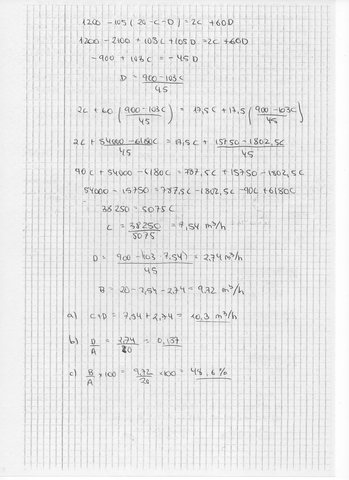 1200 - 105 (20 - C - D) = 2C + 60D
1200 - 2100 + 105C + 105D = 2C + 60D
-900 + 103C = -45D
D = 900 - 103C / 45
2C + 60 (900 - 103C / 45) = 17,5C + 17,5 (900 - 103C / 45)
2C + 54000 - 6180C / 45 = 17,5C + 15750 - 1802,5C / 45
90C + 54000 - 6180C = 787,5C + 15750 - 1802,5C
54000 - 15750 = 787,5C - 1802,5C - 90C + 6180C
38250 = 5075C
C = 38250 / 5075 = 7,54 m³/h
D = 900 - (103 · 7,54) / 45 = 2,74 m³/h
B = 20 - 7,54 - 2,74 = 9,72 m³/h
a) C+D = 7,54 + 2,74 = 10,3 m³/h
b) D / A = 2,74 / 20 = 0,137
c) B / A × 100 = 9,72 / 20 × 100 = 48,6 %